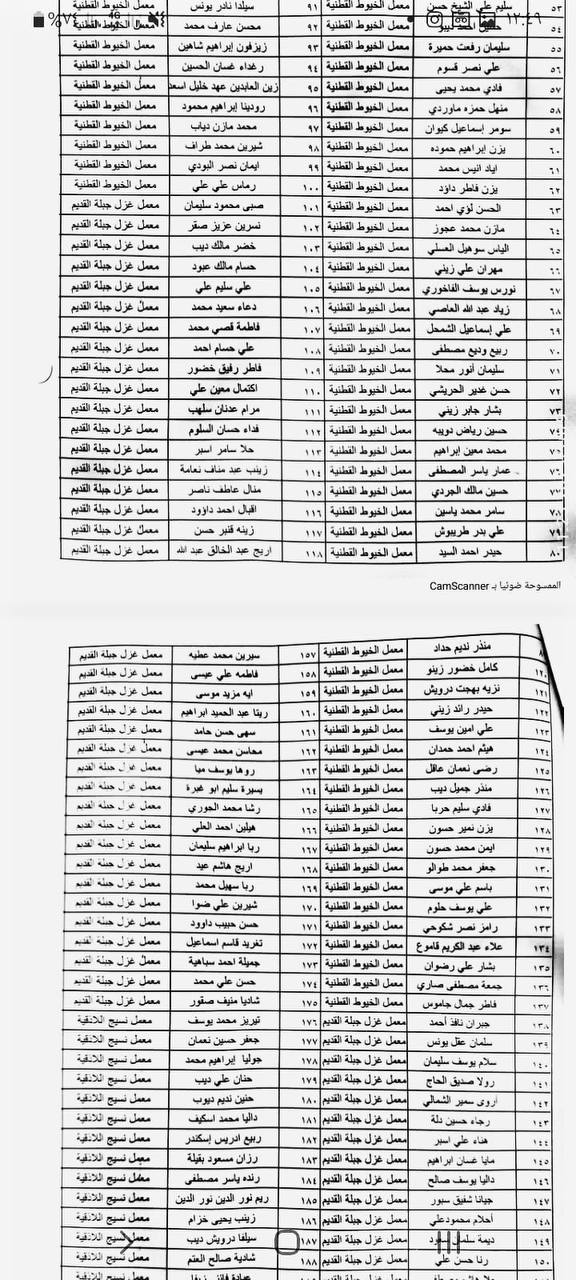 ١٢:٤٩
%٧٤
4G
٥٣ سليم علي الشيخ حسن معمل الخيوط القطنية ٩١ سيلدا نادر يونس معمل الخيوط القطنية
٥٤ معمل الخيوط القطنية ٩٢ محسن عارف محمد معمل الخيوط القطنية
٥٥ سليمان رفعت حميرة معمل الخيوط القطنية ٩٣ زيزفون إبراهيم شاهين معمل الخيوط القطنية
٥٦ علي نصر قسوم معمل الخيوط القطنية ٩٤ رغداء غسان الحسين معمل الخيوط القطنية
٥٧ فادي محمد يحيى معمل الخيوط القطنية ٩٥ زين العابدين عهد خليل اسعد معمل الخيوط القطنية
٥٨ منهل حمزه ماوردي معمل الخيوط القطنية ٩٦ رودينا إبراهيم محمود معمل الخيوط القطنية
٥٩ سومر إسماعيل كيوان معمل الخيوط القطنية ٩٧ محمد مازن دياب معمل الخيوط القطنية
٦٠ يزن إبراهيم حموده معمل الخيوط القطنية ٩٨ شيرين محمد طراف معمل الخيوط القطنية
٦١ اياد انيس محمد معمل الخيوط القطنية ٩٩ ايمان نصر البودي معمل الخيوط القطنية
٦٢ يزن فاطر داؤد معمل الخيوط القطنية ١٠٠ رماس علي علي معمل الخيوط القطنية
٦٣ الحسن لؤي احمد معمل الخيوط القطنية ١٠١ صبى محمود سليمان معمل غزل جبلة القديم
٦٤ مازن محمد عجوز معمل الخيوط القطنية ١٠٢ نسرين عزيز صقر معمل غزل جبلة القديم
٦٥ الياس سوهيل العسلي معمل الخيوط القطنية ١٠٣ خضر مالك ديب معمل غزل جبلة القديم
٦٦ مهران علي زيني معمل الخيوط القطنية ١٠٤ حسام مالك عبود معمل غزل جبلة القديم
٦٧ نورس يوسف الفاخوري معمل الخيوط القطنية ١٠٥ علي سليم علي معمل غزل جبلة القديم
٦٨ زياد عبد الله العاصي معمل الخيوط القطنية ١٠٦ دعاء سعيد محمد معمل غزل جبلة القديم
٦٩ علي إسماعيل الشمحل معمل الخيوط القطنية ١٠٧ فاطمة قصي محمد معمل غزل جبلة القديم
٧٠ ربيع وديع مصطفى معمل الخيوط القطنية ١٠٨ علي حسام احمد معمل غزل جبلة القديم
٧١ سليمان أنور محلا معمل الخيوط القطنية ١٠٩ فاطر رفيق خضور معمل غزل جبلة القديم
٧٢ حسن غدير الحريشي معمل الخيوط القطنية ١١٠ اكتمال معين علي معمل غزل جبلة القديم
٧٣ بشار جابر زيني معمل الخيوط القطنية ١١١ مرام عدنان سلهب معمل غزل جبلة القديم
٧٤ حسين رياض دويبه معمل الخيوط القطنية ١١٢ فداء حسان السلوم معمل غزل جبلة القديم
٧٥ محمد معين إبراهيم معمل الخيوط القطنية ١١٣ حلا سامر اسبر معمل غزل جبلة القديم
٧٦ عمار ياسر المصطفى معمل الخيوط القطنية ١١٤ زينب عبد مناف نعامة معمل غزل جبلة القديم
٧٧ حسين مالك الجردي معمل الخيوط القطنية ١١٥ منال عاطف ناصر معمل غزل جبلة القديم
٧٨ سامر محمد ياسين معمل الخيوط القطنية ١١٦ اقبال احمد داوود معمل غزل جبلة القديم
٧٩ علي بدر طربوش معمل الخيوط القطنية ١١٧ زينه قنبر حسن معمل غزل جبلة القديم
٨٠ حيدر احمد السيد معمل الخيوط القطنية ١١٨ اريج عبد الخالق عبد الله معمل غزل جبلة القديم
الممسوحة ضوئيا بـ CamScanner
منذر نديم حداد معمل الخيوط القطنية ١٥٧ سيرين محمد عطيه معمل غزل جبلة القديم
١٢٠ كامل خضور زينو معمل الخيوط القطنية ١٥٨ فاطمه علي عيسى معمل غزل جبلة القديم
١٢١ نزيه بهجت درويش معمل الخيوط القطنية ١٥٩ ايه مزيد موسى معمل غزل جبلة القديم
١٢٢ حيدر رائد زيني معمل الخيوط القطنية ١٦٠ ريتا عبد الحميد ابراهيم معمل غزل جبلة القديم
١٢٣ علي امين يوسف معمل الخيوط القطنية ١٦١ سهى حسن حامد معمل غزل جبلة القديم
١٢٤ هيثم احمد حمدان معمل الخيوط القطنية ١٦٢ محاسن محمد عيسى معمل غزل جبلة القديم
١٢٥ رضى نعمان عاقل معمل الخيوط القطنية ١٦٣ روها يوسف ميا معمل غزل جبلة القديم
١٢٦ منذر جميل ديب معمل الخيوط القطنية ١٦٤ يسيرة سليم ابو غبرة معمل غزل جبلة القديم
١٢٧ فادي سليم حربا معمل الخيوط القطنية ١٦٥ رشا محمد الجوري معمل غزل جبلة القديم
١٢٨ يزن نمير حسون معمل الخيوط القطنية ١٦٦ هيلين احمد العلي معمل غزل جبلة القديم
١٢٩ ايمن محمد حسون معمل الخيوط القطنية ١٦٧ ربا ابراهيم سليمان معمل غزل جبلة القديم
١٣٠ جعفر محمد طوالو معمل الخيوط القطنية ١٦٨ اريج هاشم عيد معمل غزل جبلة القديم
١٣١ باسم علي موسى معمل الخيوط القطنية ١٦٩ ربا سهيل محمد معمل غزل جبلة القديم
١٣٢ علي يوسف حلوم معمل الخيوط القطنية ١٧٠ شيرين علي ضوا معمل غزل جبلة القديم
١٣٣ رامز نصر شكوحي معمل الخيوط القطنية ١٧١ حسن حبيب داوود معمل غزل جبلة القديم
١٣٤ علاء عبد الكريم قاموع معمل الخيوط القطنية ١٧٢ تغريد قاسم اسماعيل معمل غزل جبلة القديم
١٣٥ بشار علي رضوان معمل الخيوط القطنية ١٧٣ جميلة احمد سباهية معمل غزل جبلة القديم
١٣٦ جمعة مصطفى صاري معمل الخيوط القطنية ١٧٤ حسن علي محمد معمل غزل جبلة القديم
١٣٧ فاطر جمال جاموس معمل الخيوط القطنية ١٧٥ شاديا منيف صقور معمل غزل جبلة القديم
١٣٨ جبران نافذ أحمد معمل غزل جبلة القديم ١٧٦ تيريز محمد يوسف معمل نسيج اللاذقية
١٣٩ سلمان عقل يونس معمل غزل جبلة القديم ١٧٧ جعفر حسين نعمان معمل نسيج اللاذقية
١٤٠ سلام يوسف سليمان معمل غزل جبلة القديم ١٧٨ جوليا إبراهيم محمد معمل نسيج اللاذقية
١٤١ رولا صديق الحاج معمل غزل جبلة القديم ١٧٩ حنان علي ديب معمل نسيج اللاذقية
١٤٢ أروى سمير الشمالي معمل غزل جبلة القديم ١٨٠ حنين نديم ديوب معمل نسيج اللاذقية
١٤٣ رجاء حسين دلة معمل غزل جبلة القديم ١٨١ داليا محمد اسكيف معمل نسيج اللاذقية
١٤٤ هناء علي اسبر معمل غزل جبلة القديم ١٨٢ ربيع ادريس إسكندر معمل نسيج اللاذقية
١٤٥ مايا غسان ابراهيم معمل غزل جبلة القديم ١٨٣ رزان مسعود بقيلة معمل نسيج اللاذقية
١٤٦ داليا يوسف صالح معمل غزل جبلة القديم ١٨٤ رنده ياسر مصطفى معمل نسيج اللاذقية
١٤٧ جيانا شفيق سبور معمل غزل جبلة القديم ١٨٥ ريم نور الدين نور الدين معمل نسيج اللاذقية
١٤٨ أحلام محمودعلي معمل غزل جبلة القديم ١٨٦ زينب يحيى خزام معمل نسيج اللاذقية
١٤٩ ديمة معمل غزل جبلة القديم ١٨٧ سيلفا درويش ديب معمل نسيج اللاذقية
١٥٠ رنا حسن علي معمل غزل جبلة القديم ١٨٨ شادية صالح العتم معمل نسيج اللاذقية